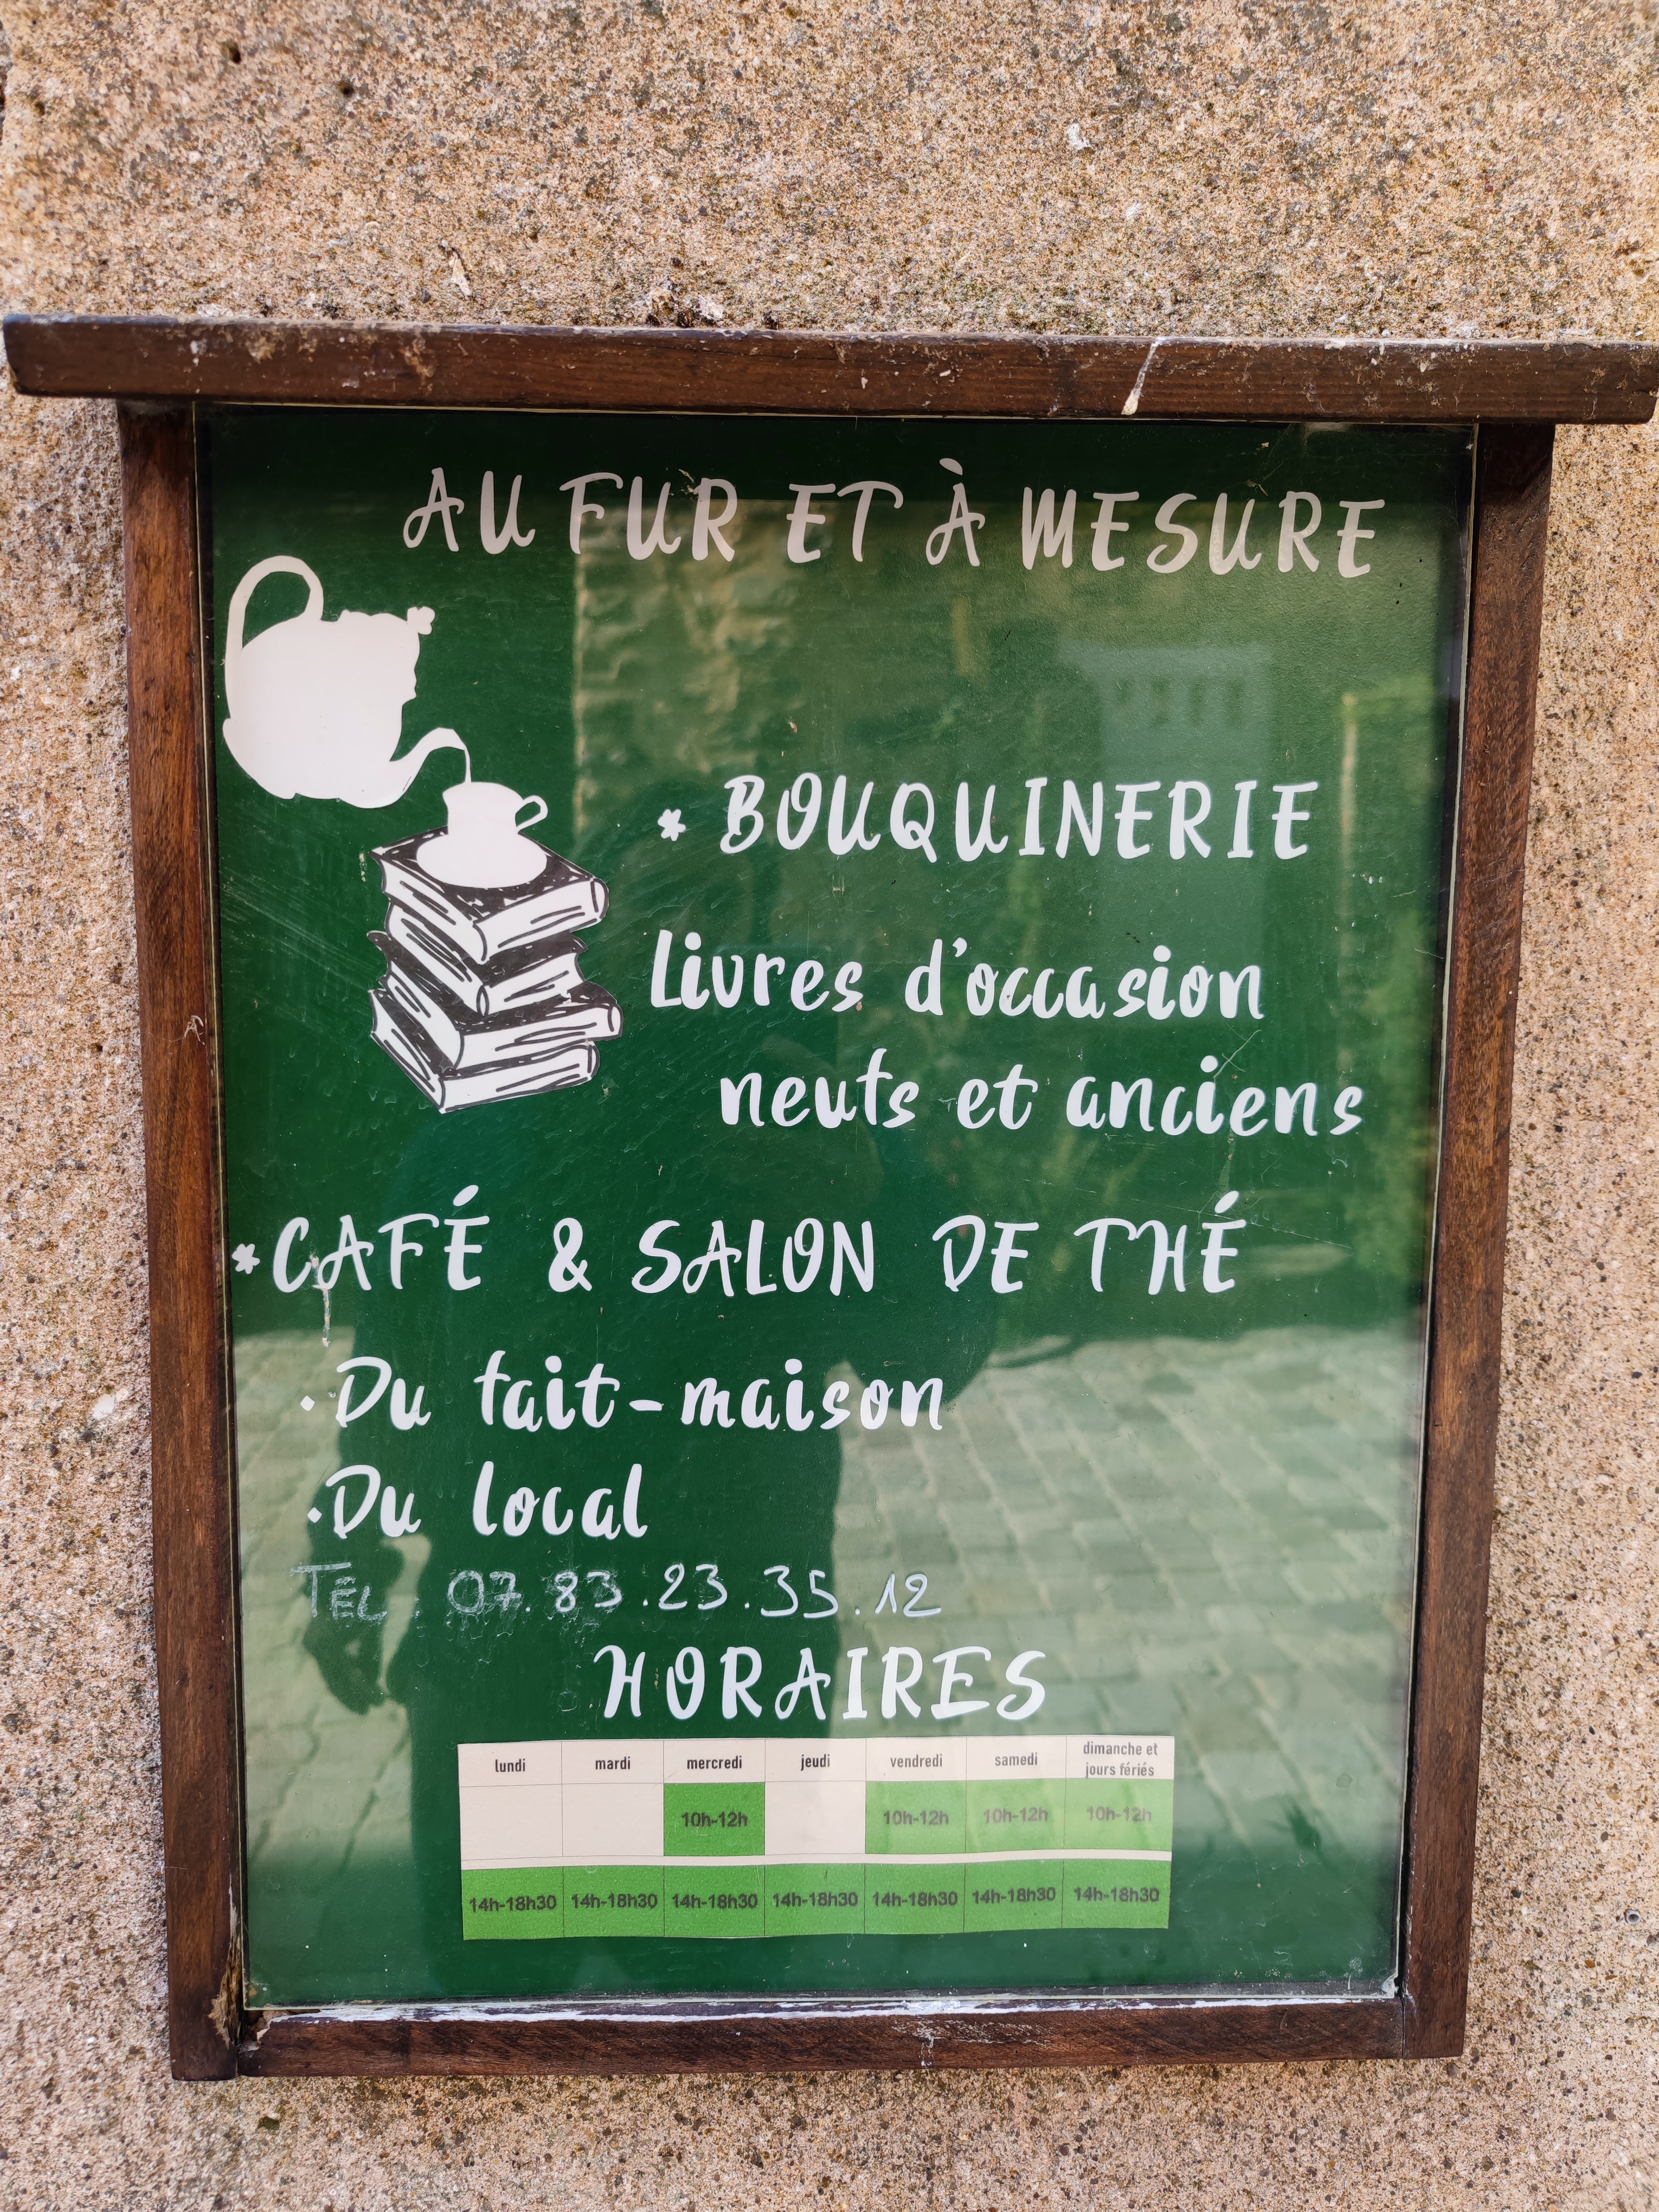 AU FUR ET À MESURE
* BOUQUINERIE
Livres d'occasion
neufs et anciens
*CAFÉ & SALON DE THÉ
·Du fait-maison
·Du local
TÉL. 07.83.23.35.12
HORAIRES
lundi mardi mercredi jeudi vendredi samedi dimanche et jours fériés
10h-12h 10h-12h 10h-12h 10h-12h
14h-18h30 14h-18h30 14h-18h30 14h-18h30 14h-18h30 14h-18h30 14h-18h30